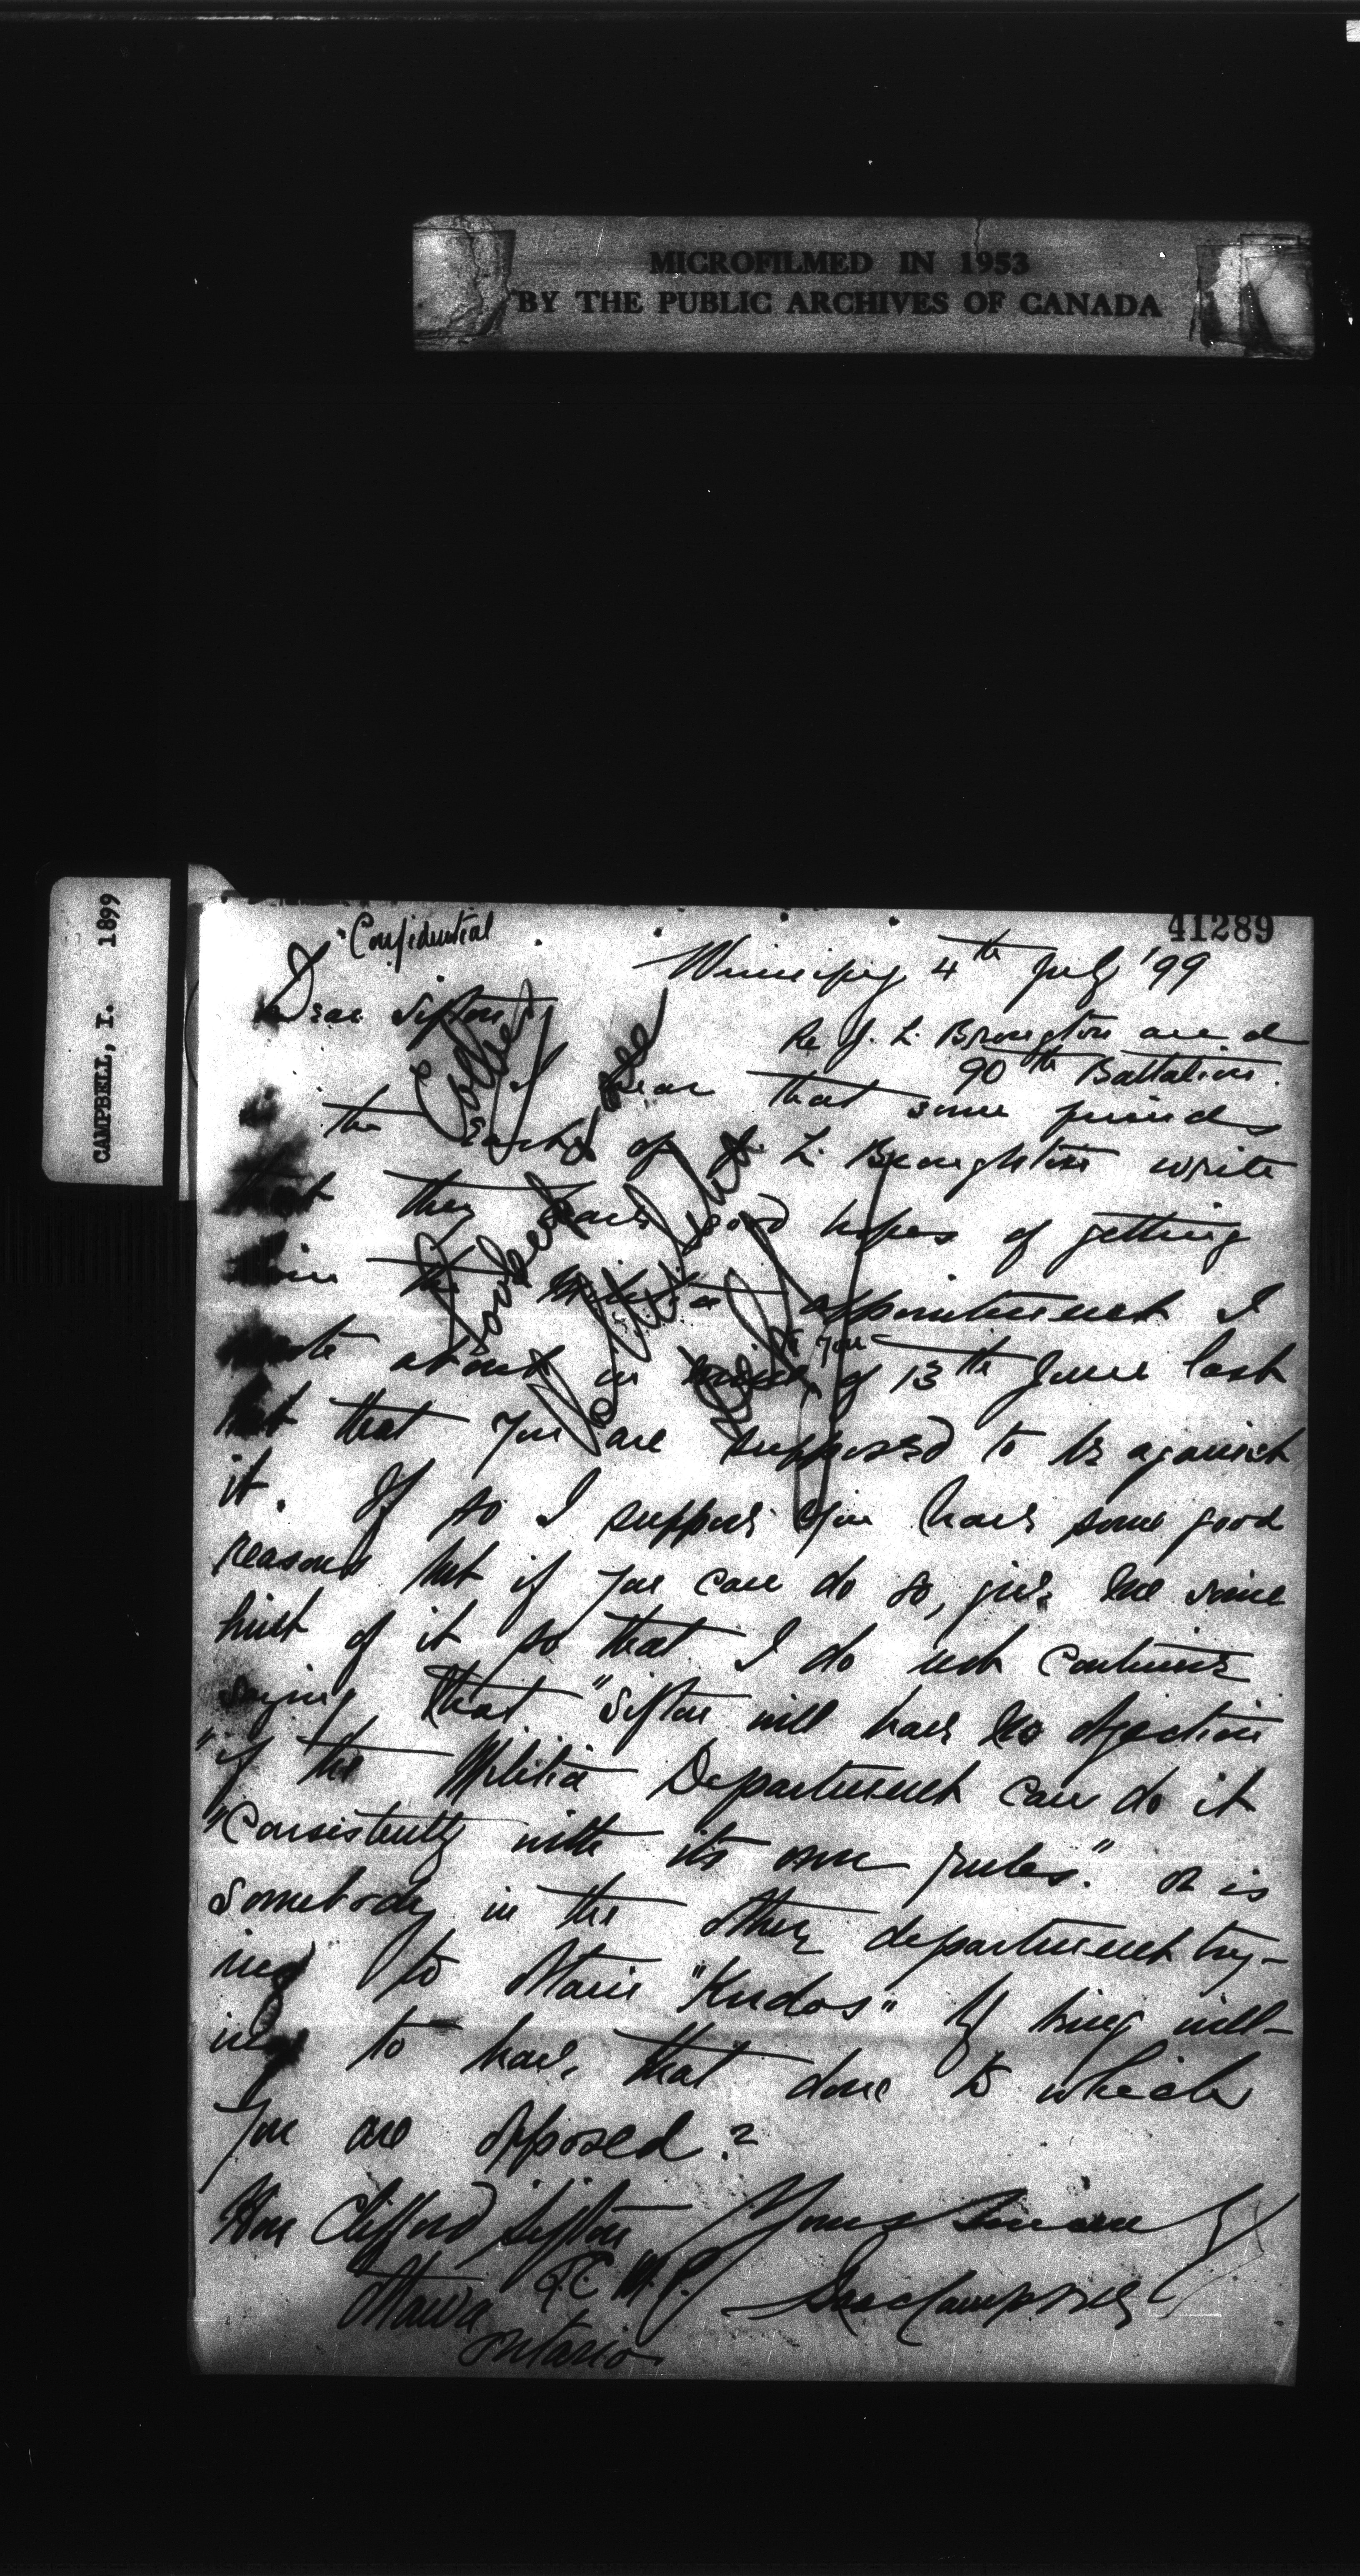 MICROFILMED IN 1953
BY THE PUBLIC ARCHIVES OF CANADA
CAMPBELL, I. 1899
41289
Confidential
Winnipeg 4th July '99
Dear Sifton
Re J. L. Broughton and
90th Battalion.
I hear that some friends
in the East of J. L. Broughton write
that they have good hopes of getting
him the Militia appointment I
wrote about in mine to you of 13th June last
but that you are supposed to be against
it. If so I suppose you have some good
reasons but if you can do so, give me some
hint of it so that I do not continue
saying that "Sifton will have no objection
"if the Militia Department can do it
"Consistently with its own rules." or is
somebody in the other department try-
ing to obtain "Kudos" by being will-
ing to have that done to which
you are opposed?
Yours Sincerely
Isaac Campbell
Hon Clifford Sifton
Q.C. M.P.
Ottawa
Ontario